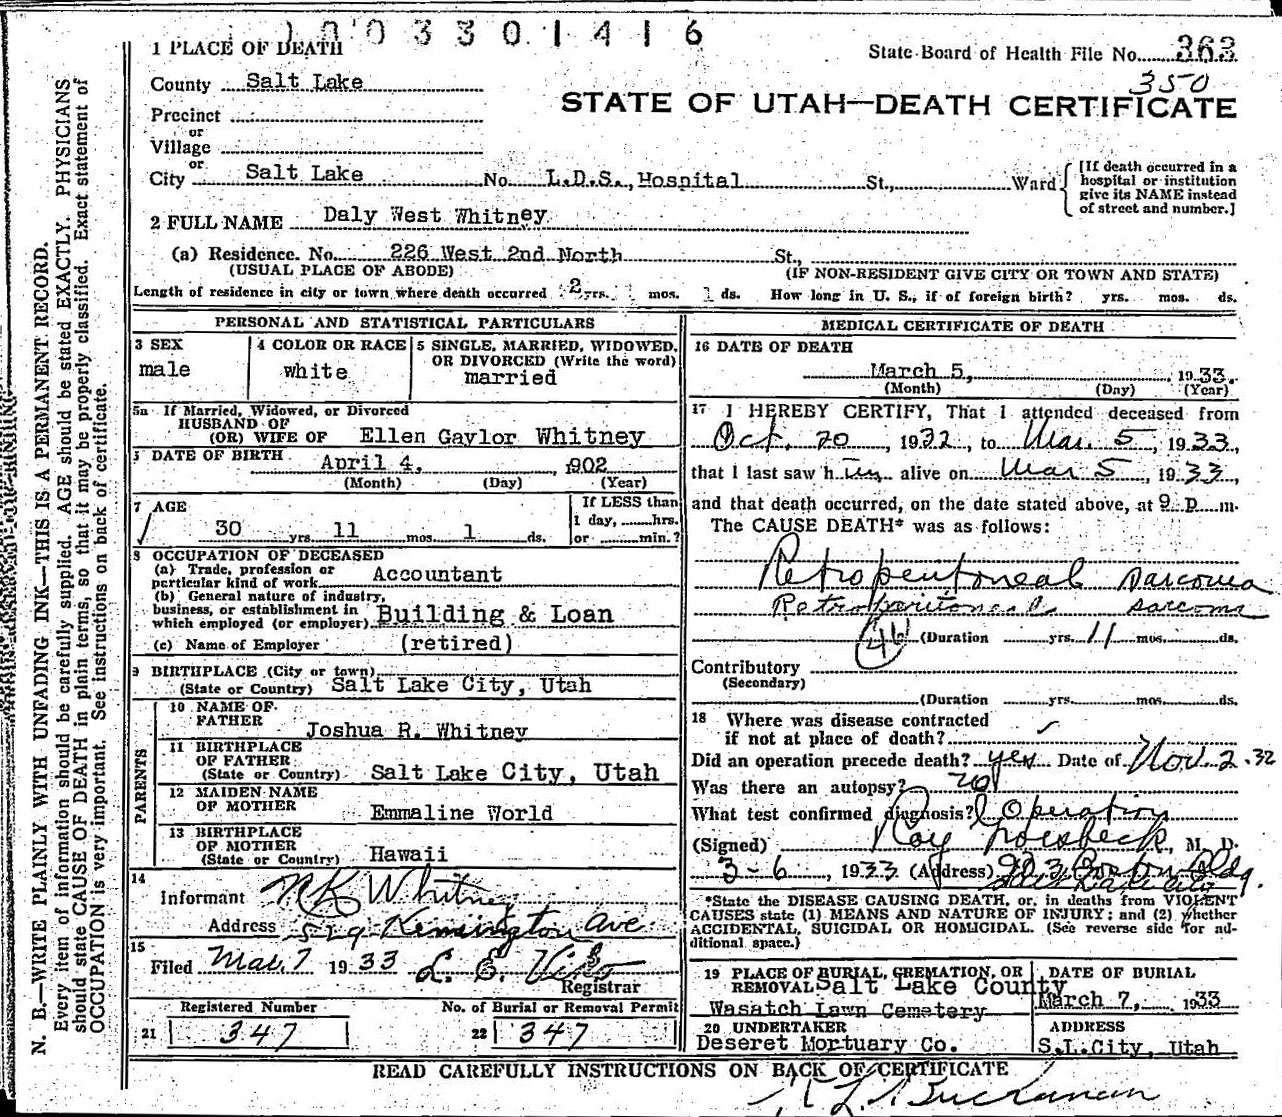 1 0 0 3 3 0 1 4 1 6
1 PLACE OF DEATH
State Board of Health File No. 363
350
County Salt Lake
STATE OF UTAH—DEATH CERTIFICATE
Precinct
or
Village
or
City Salt Lake No. L.D.S., Hospital St., Ward
[If death occurred in a hospital or institution give its NAME instead of street and number.]
2 FULL NAME Daly West Whitney
(a) Residence. No. 226 West 2nd North St.,
(USUAL PLACE OF ABODE) (IF NON-RESIDENT GIVE CITY OR TOWN AND STATE)
Length of residence in city or town where death occurred 2 yrs. mos. ds. How long in U. S., if of foreign birth? yrs. mos. ds.
PERSONAL AND STATISTICAL PARTICULARS
3 SEX
male
4 COLOR OR RACE
white
5 SINGLE, MARRIED, WIDOWED, OR DIVORCED (Write the word)
married
5a If Married, Widowed, or Divorced
HUSBAND OF
(OR) WIFE OF Ellen Gaylor Whitney
DATE OF BIRTH April 4, 1902
(Month) (Day) (Year)
7 AGE
30 yrs. 11 mos. 1 ds.
If LESS than
1 day, hrs.
or min.?
8 OCCUPATION OF DECEASED
(a) Trade, profession or
particular kind of work Accountant
(b) General nature of industry,
business, or establishment in
which employed (or employer) Building & Loan
(c) Name of Employer (retired)
9 BIRTHPLACE (City or town)
(State or Country) Salt Lake City, Utah
PARENTS
10 NAME OF
FATHER Joshua R. Whitney
11 BIRTHPLACE
OF FATHER
(State or Country) Salt Lake City, Utah
12 MAIDEN NAME
OF MOTHER Emmaline World
13 BIRTHPLACE
OF MOTHER
(State or Country) Hawaii
14
Informant N K Whitney
Address 529 Kensington Ave
15
Filed Mar. 7 1933
Registrar
Registered Number
21 347
No. of Burial or Removal Permit
22 347
MEDICAL CERTIFICATE OF DEATH
16 DATE OF DEATH
March 5, 1933.
(Month) (Day) (Year)
17 I HEREBY CERTIFY, That I attended deceased from
Oct. 20, 1932, to Mar. 5, 1933,
that I last saw him alive on Mar 5, 1933,
and that death occurred, on the date stated above, at 9 p m.
The CAUSE DEATH* was as follows:
Retroperitoneal sarcoma
Retroperitoneal sarcoma
46 (Duration yrs. 11 mos. ds.
Contributory
(Secondary)
(Duration yrs. mos. ds.
18 Where was disease contracted
if not at place of death?
Did an operation precede death? yes Date of Nov. 2. 32
Was there an autopsy? no
What test confirmed diagnosis? Operation
(Signed) Roy Groesbeck, M. D.
3-6, 1933 (Address) 903 Boston Bldg.
Salt Lake City
*State the DISEASE CAUSING DEATH, or, in deaths from VIOLENT
CAUSES state (1) MEANS AND NATURE OF INJURY; and (2) whether
ACCIDENTAL, SUICIDAL OR HOMICIDAL. (See reverse side for ad-
ditional space.)
19 PLACE OF BURIAL, CREMATION, OR
REMOVAL Salt Lake County
Wasatch Lawn Cemetery
DATE OF BURIAL
March 7, 1933
20 UNDERTAKER
Deseret Mortuary Co.
ADDRESS
S.L.City, Utah
READ CAREFULLY INSTRUCTIONS ON BACK OF CERTIFICATE
Buchanan
N. B.—WRITE PLAINLY WITH UNFADING INK—THIS IS A PERMANENT RECORD.
Every item of information should be carefully supplied. AGE should be stated EXACTLY. PHYSICIANS
should state CAUSE OF DEATH in plain terms, so that it may be properly classified. Exact statement of
OCCUPATION is very important. See instructions on back of certificate.